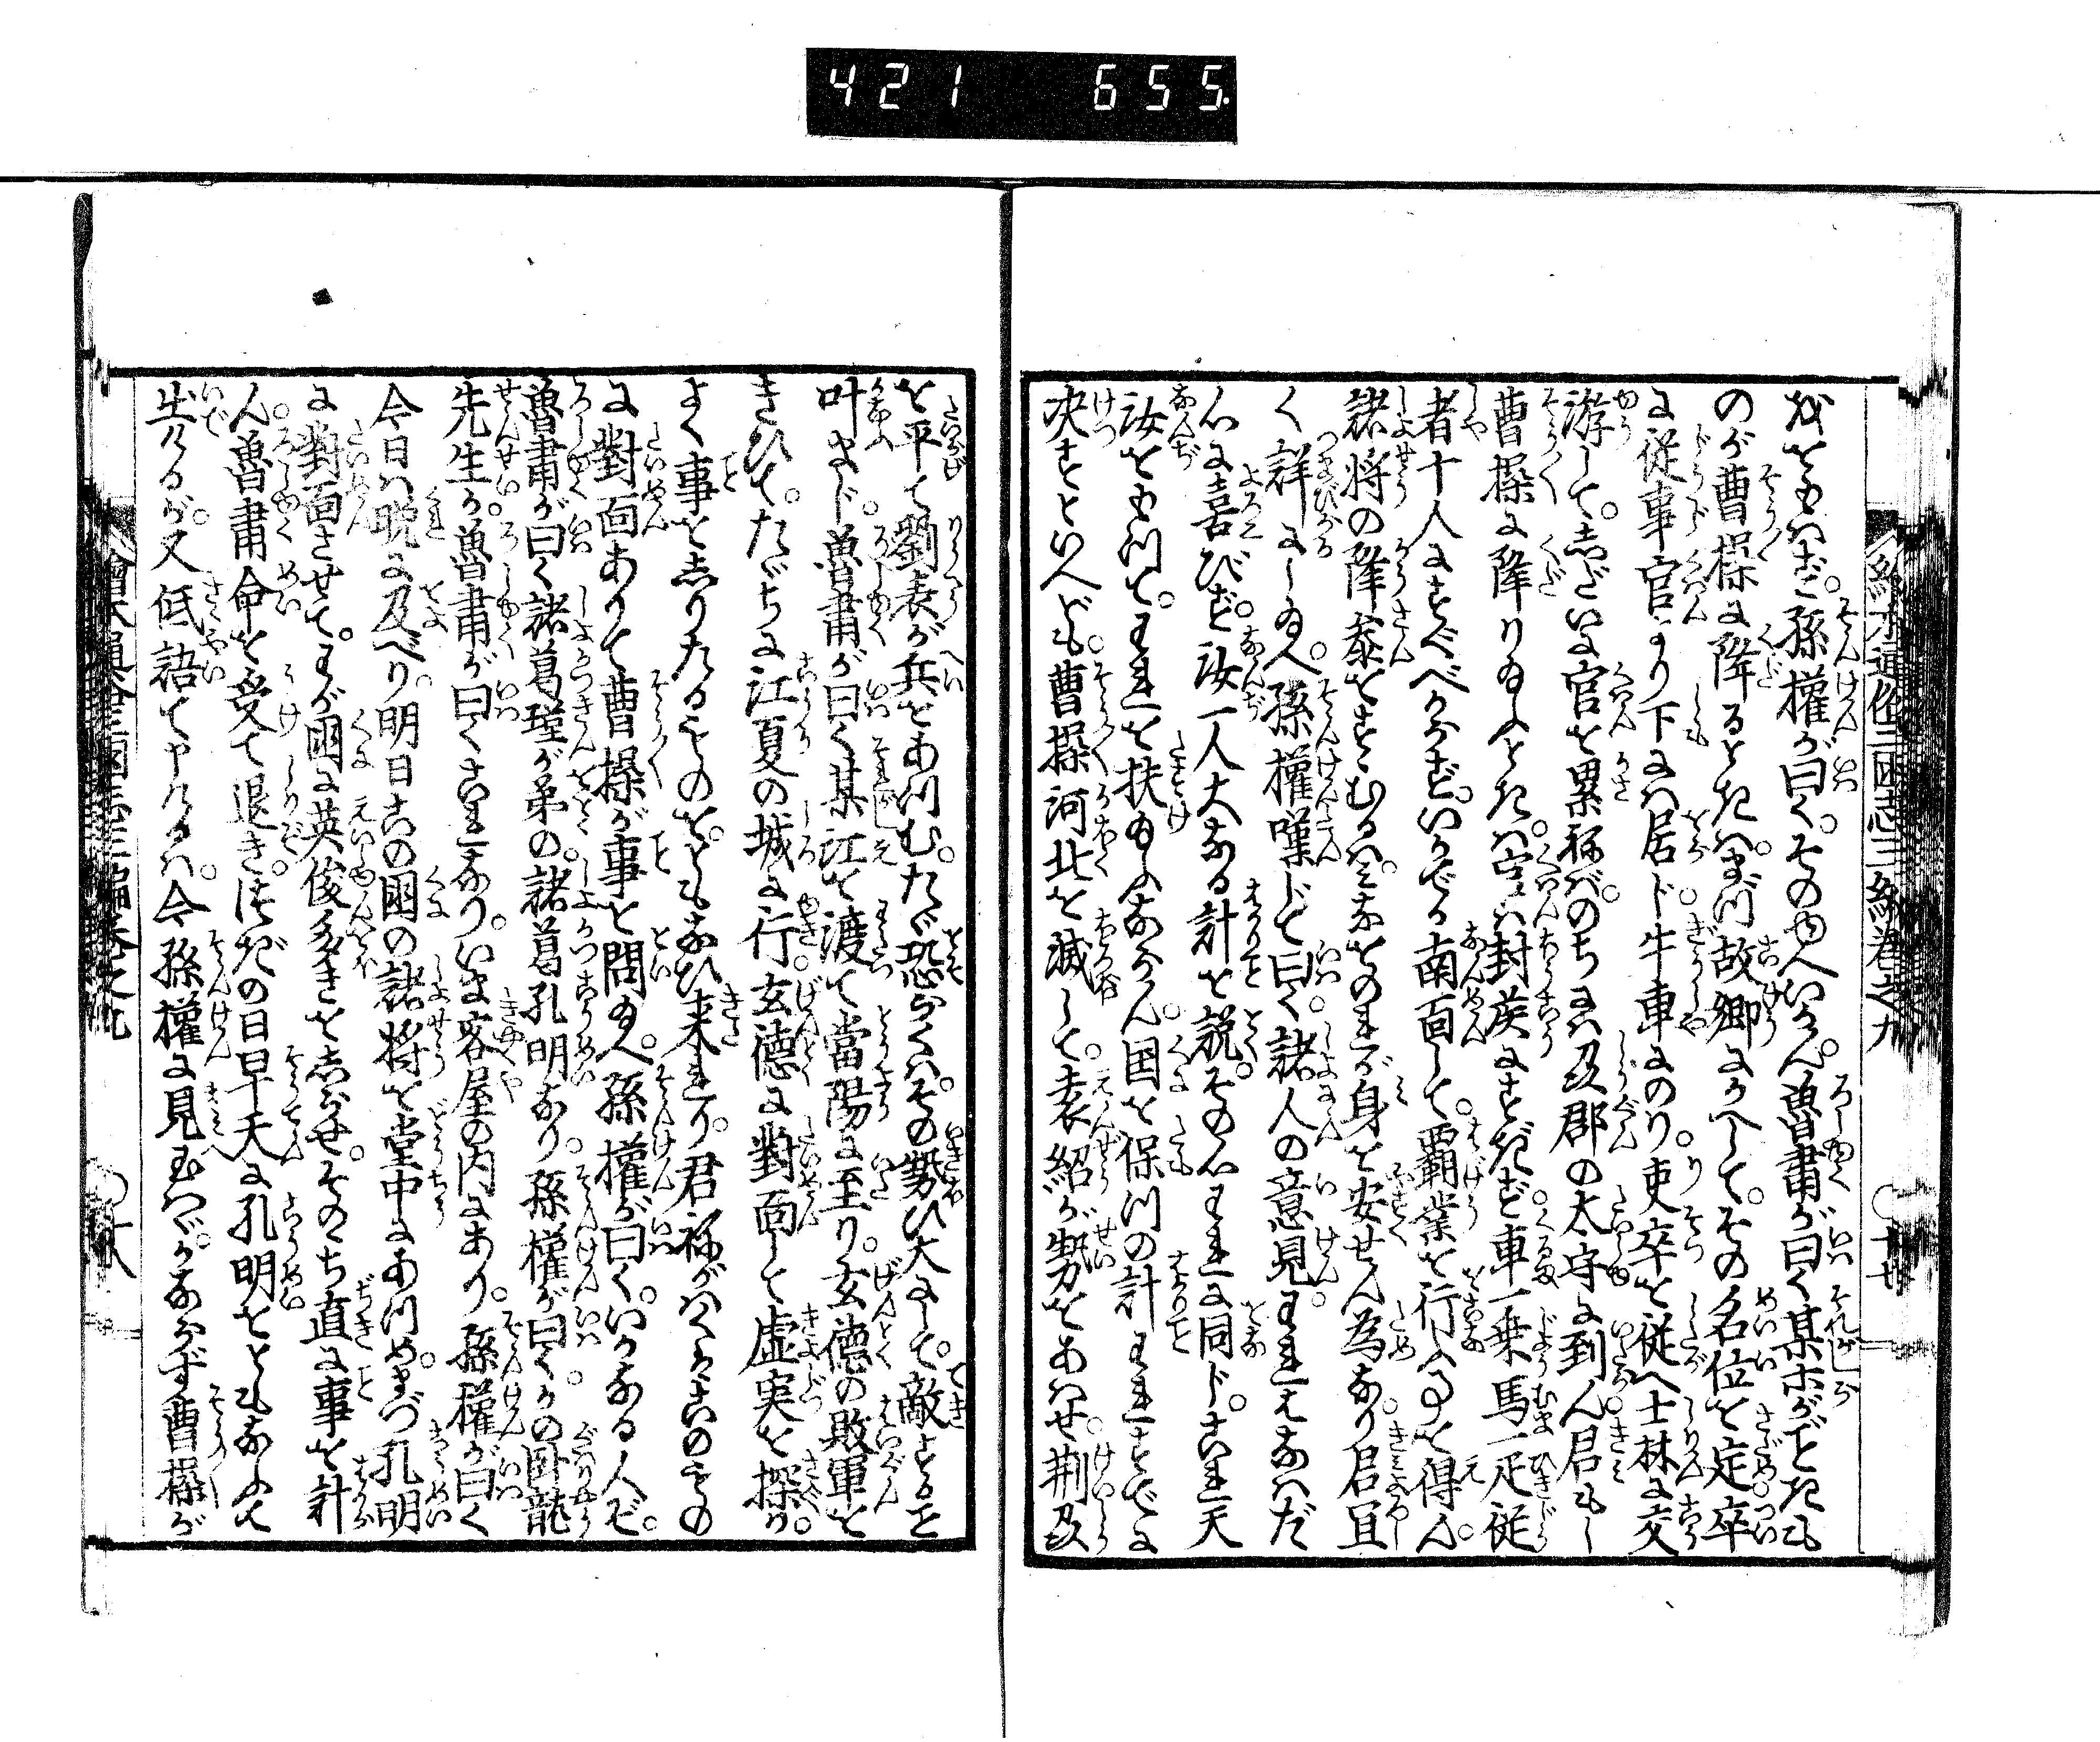 421 655
繪本通俗三國志三編卷之九
をともはず。孫權が曰く。そのゆへいかん。魯肅が曰く某ホがごときも
のが曹操に降るときハ。まづ故郷にかへして。その名位を定卒
に従事官より下にハ居ド。牛車にのり。吏卒を従へ士林に交
游して。しだいに官を累ねバ。のちにハ及郡の太守に到ん。君もし
曹操に降り給ふときハ。官ハ封侯にすぎず。車一乗馬一疋従
者十人にすぐべからず。いかでか南面して。覇業を行ふ事を得ん。
諸将の降参をすゝむるハ。ミなをのれが身を安せん為なり。君且
く詳にし給へ。孫權嘆じて曰く。諸人の意見。われはなはだ
心に喜びず。汝一人大なる計を説。その心われに同ド。これ天
汝をもつて。われを扶給ふならん。国を保つの計われすでに
决すといへども。曹操河北を滅して。袁紹が勢をあハせ。荆及
を平て劉表が兵をあつむ。たゞ恐らくハ。その勢ひ大にして。敵すること
叶まド。魯肅が曰く某江を渡て當陽に至り。玄徳の敗軍を
きひて。たゞちに江夏の城に行。玄徳に對面して虚実を探り。
よく事をしりたるものを。ともなひ来れり。君祢がハくハこのもの
に對面ありて曹操が事を問給へ。孫權が曰く。いかなる人ぞ。
魯肅が曰く諸葛瑾が弟の。諸葛孔明なり。孫權が曰く。かの卧龍
先生か。魯肅が曰くこれなり。いま客屋の内にあり。孫權が曰く
今日ハ晩に及べり。明日この國の諸将を堂中にあつめ。まづ孔明
に對面させて。わが國に英俊多きをしらせ。そのち直に事を計
ん。魯肅命を受て退き。次の日早天に孔明をともなふて
出けるが。又低語て申けるハ。今孫權に見玉ハヾ。かならず曹操が
繪本通俗三國志三編卷之九